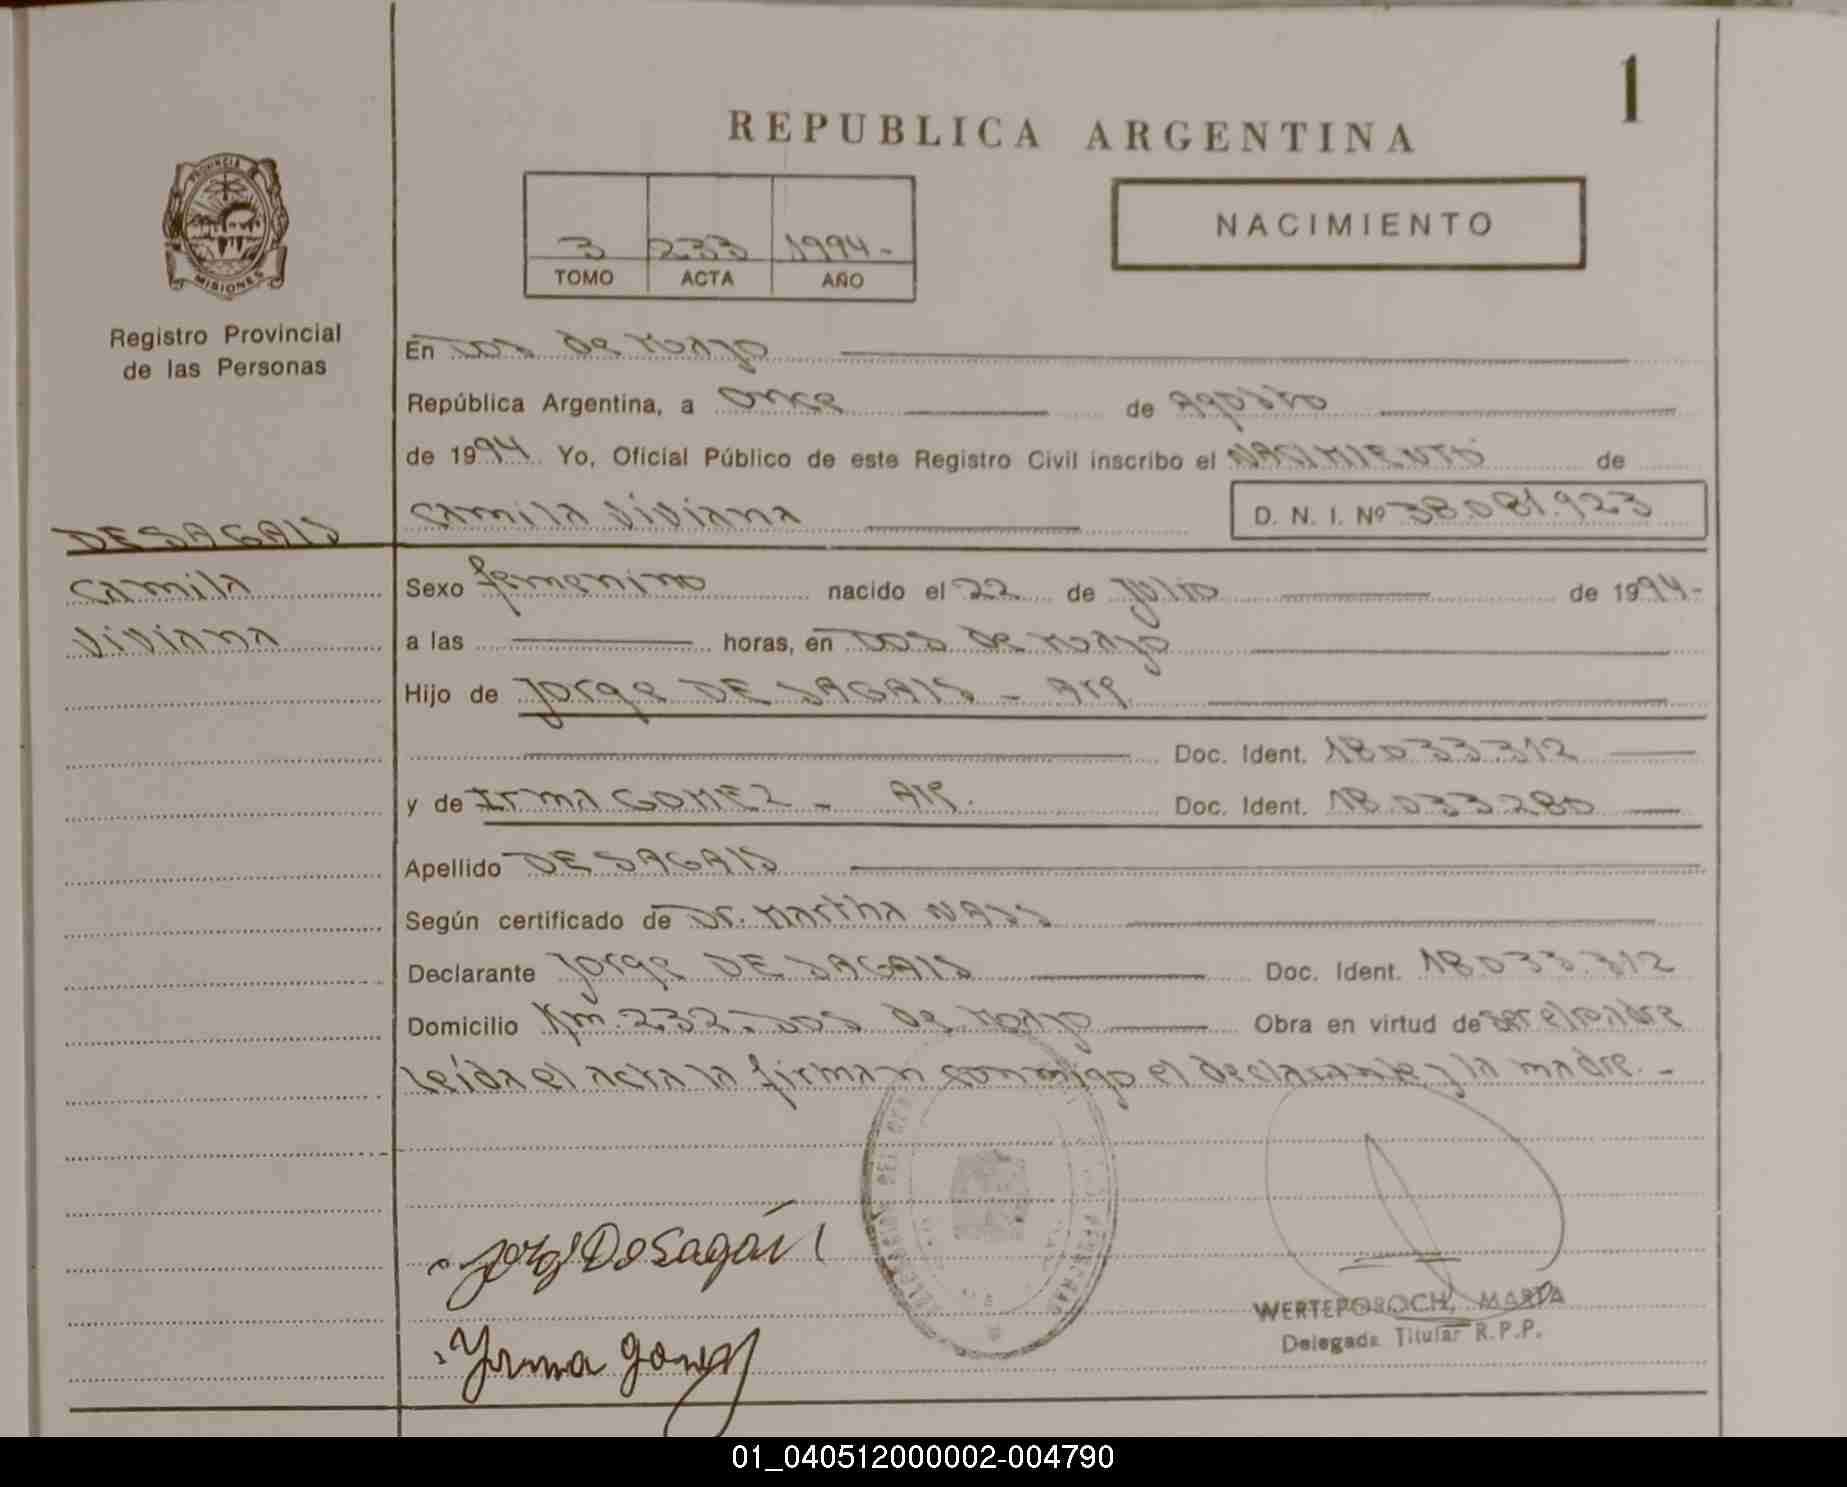 1
REPUBLICA ARGENTINA
PROVINCIA
MISIONES
Registro Provincial
de las Personas
3 233 1994-
TOMO ACTA AÑO
NACIMIENTO
En Dos de Mayo
República Argentina, a Once de Agosto
de 1994. Yo, Oficial Público de este Registro Civil inscribo el NACIMIENTO de
Camila Viviana D. N. I. Nº 38.081.923
DESAGAIS
Camila
Viviana
Sexo femenino nacido el 22 de Julio de 1994-
a las horas, en Dos de Mayo
Hijo de Jorge DE SAGAIS - Arg.
Doc. Ident. 18.033.312
y de Irma GOMEZ - Arg. Doc. Ident. 18.033.280
Apellido DE SAGAIS
Según certificado de Dr. Martha NASS
Declarante Jorge DE SAGAIS Doc. Ident. 18.033.312
Domicilio Km. 232. Dos de Mayo Obra en virtud de ser el padre
Leída el acta la firman conmigo el declarante y la madre. -
Jorge De Sagais
Yrma Gomez
WERTEPOROCH, MARTA
Delegada Titular R.P.P.
01_040512000002-004790